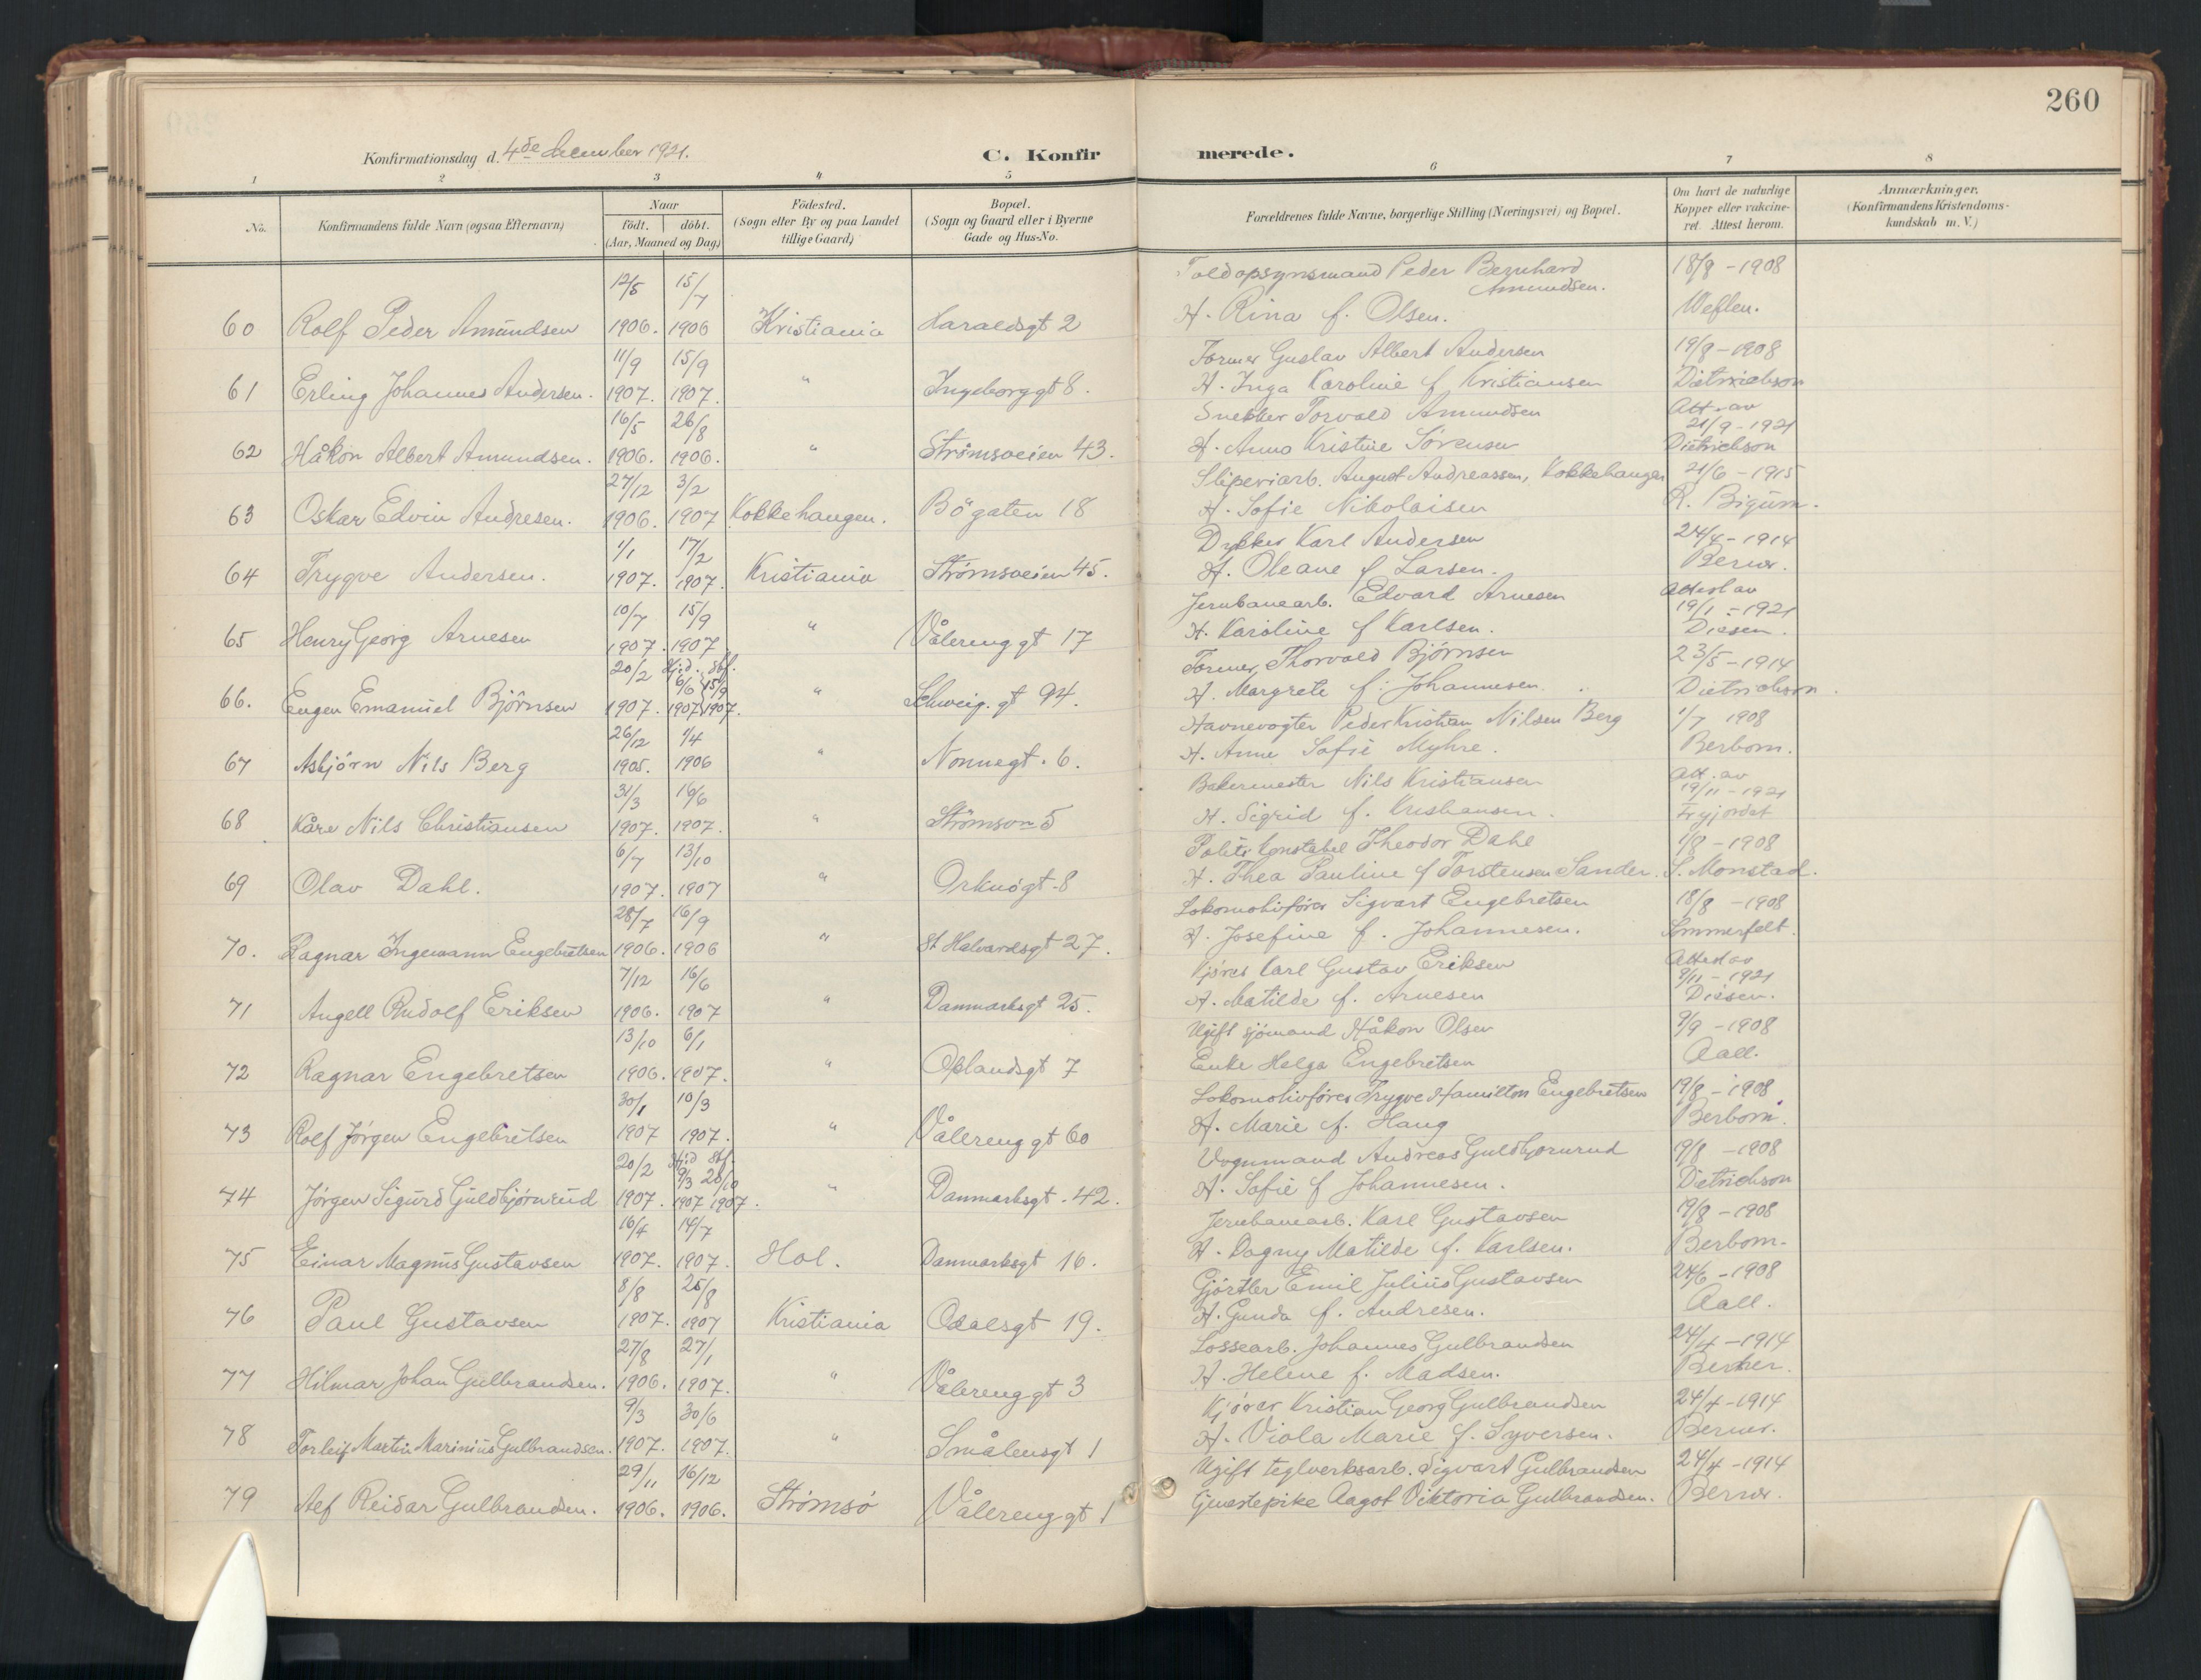 260
Konfirmationsdag d. 4de December 1921.
C. Konfirmerede.
1 2 3 4 5 6 7 8
No.
Konfirmandens fulde Navn (ogsaa Efternavn)
Naar
födt. döbt.
(Aar, Maaned og Dag)
Födested.
(Sogn eller By og paa Landet
tillige Gaard)
Bopæl.
(Sogn og Gaard eller i Byerne
Gade og Hus-No.
Forældrenes fulde Navne, borgerlige Stilling (Næringsvei) og Bopæl.
Om havt de naturlige
Kopper eller vakcine-
ret. Attest herom.
Anmærkninger.
(Konfirmandens Kristendoms-
kundskab m. V.)
12/5 15/7 Toldopsynsmand Peder Bernhard Amundsen. 18/8 - 1908
60 Rolf Peder Amundsen 1906. 1906 Kristiania Haraldsgt 2 H. Rina f. Olsen. Weflen.
11/9 15/9 Former Gustav Albert Andersen 19/8 - 1908
61 Erling Johannes Andersen. 1907. 1907. " Ingeborggt 8. H. Inga Karoline f Kristiansen Dietrichson
16/5 26/8 Snekker Torvald Amundsen Att. av 21/9 - 1921
62 Håkon Albert Amundsen. 1906. 1906. " Strømsveien 43. H. Anna Kristine Sørensen Dietrichson
27/12 3/2 Sliperiarb. August Andreassen, Kokkehaugen 21/6 - 1915
63 Oskar Edvin Andresen. 1906. 1907 Kokkehaugen. Bögaten 18 H. Sofie Nikolaisen R. Bigum.
1/1 17/2 Dykker Karl Andersen 24/4 - 1914
64 Trygve Andersen. 1907. 1907. Kristiania Strømsveien 45. H. Oleane f Larsen. Berner.
10/7 15/9 Jernbanearb. Edvard Arnesen Attest av 19/1 - 1921
65 Henry Georg Arnesen 1907. 1907 " Vålerenggt 17 H. Karoline f Karlsen. Diesen.
20/2 Hjd. 6/6 Stf. 15/9 Former Thorvald Bjørnsen 23/5 - 1914
66. Eugen Emanuel Bjørnsen 1907. 1907 1907. " Schweig. gt 94. H. Margrete f. Johannesen. Dietrichson.
26/12 1/4 Havnevogter Peder Kristian Nilsen Berg 1/7 1908
67 Asbjörn Nils Berg 1905. 1906 " Nonnegt. 6. H. Anne Sofie Myhre. Berbom.
31/3 16/6 Bakermester Nils Kristiansen Att. av 19/11 - 1921
68 Kåre Nils Christiansen 1907. 1907. " 5 H. Sigrid f. Kristiansen.
6/7 13/10 Politikonstabel Theodor Dahl 1/8 - 1908
69 Olav Dahl. 1907. 1907 " Orknögt. 8 H. Thea Pauline f Torstensen Sander. S. Monstad.
28/7 16/9 Lokomotivfører Sigvart Engebretsen 18/8 - 1908
70. Ragnar Ingemann Engebretsen 1906. 1906 " St Halvardsgt 27. H. Josefine f. Johannesen. Sommerfelt.
7/12 16/6 Kjører Karl Gustav Eriksen Attest av 9/11 - 1921
71 Angell Rudolf Eriksen 1906. 1907 " Danmarksgt 25. H. Matilde f. Arnesen Diesen.
13/10 6/1 Ugift sjömand Håkon Olsen 9/9 - 1908
72 Ragnar Engebretsen 1906. 1907. " Oplandsgt 7 Enke Helga Engebretsen Aall.
30/1 10/3 Lokomotivfører Trygve Hamilton Engebretsen 19/8 - 1908
73 Rolf Jørgen Engebretsen 1907 1907. " Vålerenggt 60 H. Marie f. Haug Berbom.
20/2 Hjd 9/3 Stf. 20/10 Vognmand Andreas Guldbjørnrud 19/8 - 1908
74 Jørgen Sigurd Guldbjørnrud 1907. 1907 1907. " Danmarksgt. 42. H. Sofie f Johannesen. Dietrichson
16/4 14/7 Jernbanearb. Karl Gustavsen 19/8 - 1908
75 Einar Magnus Gustavsen 1907. 1907. Hol. Danmarksgt 16. H. Dagny Matilde f. Karlsen. Berbom.
8/8 25/8 Gjørtler Emil Julius Gustavsen 24/6 - 1908
76 Paul Gustavsen 1907. 1907 Kristiania Odalsgt 19. H. Gunda f. Andresen. Aall.
27/8 27/1 Lossearb. Johannes Gulbrandsen 24/4 - 1914
77 Hilmar Johan Gulbrandsen. 1906. 1907. " Vålerenggt 3 H. Helene f. Madsen. Berner.
9/3 30/6 Kjører Kristian Georg Gulbrandsen 24/4 - 1914
78 Torleif Martin Marinius Gulbrandsen. 1907. 1907. " Smålensgt 1 H. Viola Marie f. Syversen. Berner.
29/11 16/12 Ugift teglverksarb. Sigvart Gulbrandsen 24/4 - 1914
79 Alf Reidar Gulbrandsen. 1906. 1906. Strømsö Vålerenggt 1 tjenestepike Aagot Viktoria Gulbrandsen. Berner.